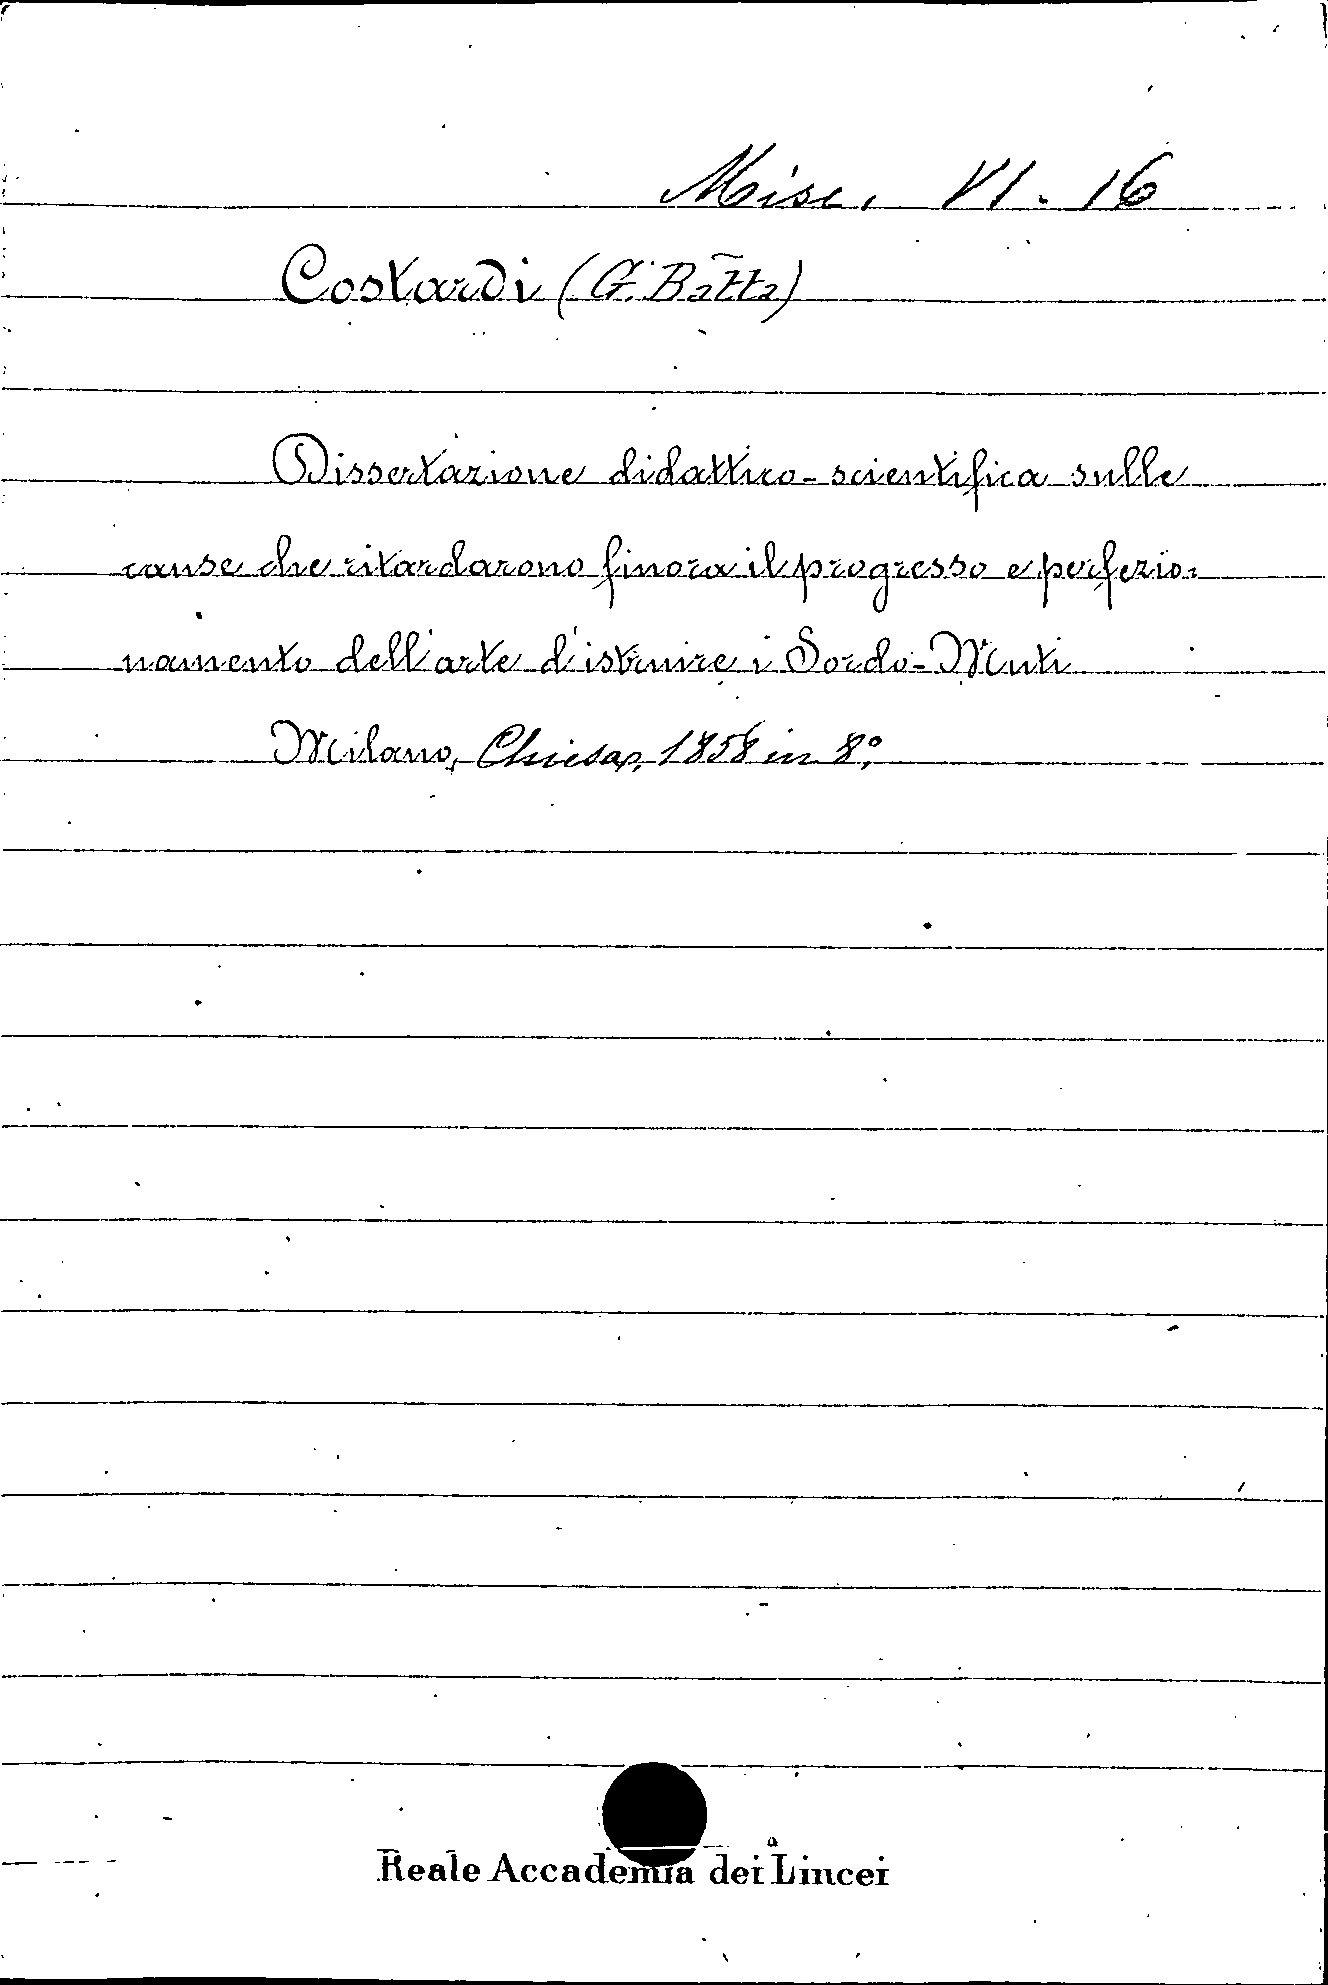 Misc. VI. 16
Costardi (G. Batta)
Dissertazione didattico-scientifica sulle
cause che ritardarono finora il progresso e perfezio-
namento dell'arte d'istruire i Sordo-Muti
Milano, Chiesa, 1858 in 8°.
Reale Accademia dei Lincei